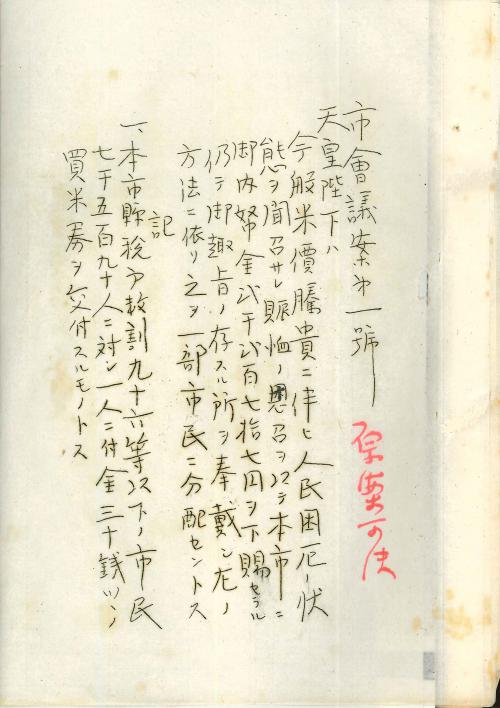 市會議案第一號
原案可決
天皇陛下ハ
今般米價騰貴ニ伴ヒ人民困厄ノ状
態ヲ聞召サレ賑恤ノ思召ヲ以テ本市ニ
御内帑金弐千弐百七拾七円ヲ下賜セラル
仍テ御趣旨ノ存スル所ヲ奉戴シ左ノ
方法ニ依リ之ヲ一部市民ニ分配セントス
記
一、本市縣税戸数割九十六等以下ノ市民
七千五百九十人ニ対シ一人ニ付金三十銭ツヽノ
買米券ヲ交付スルモノトス